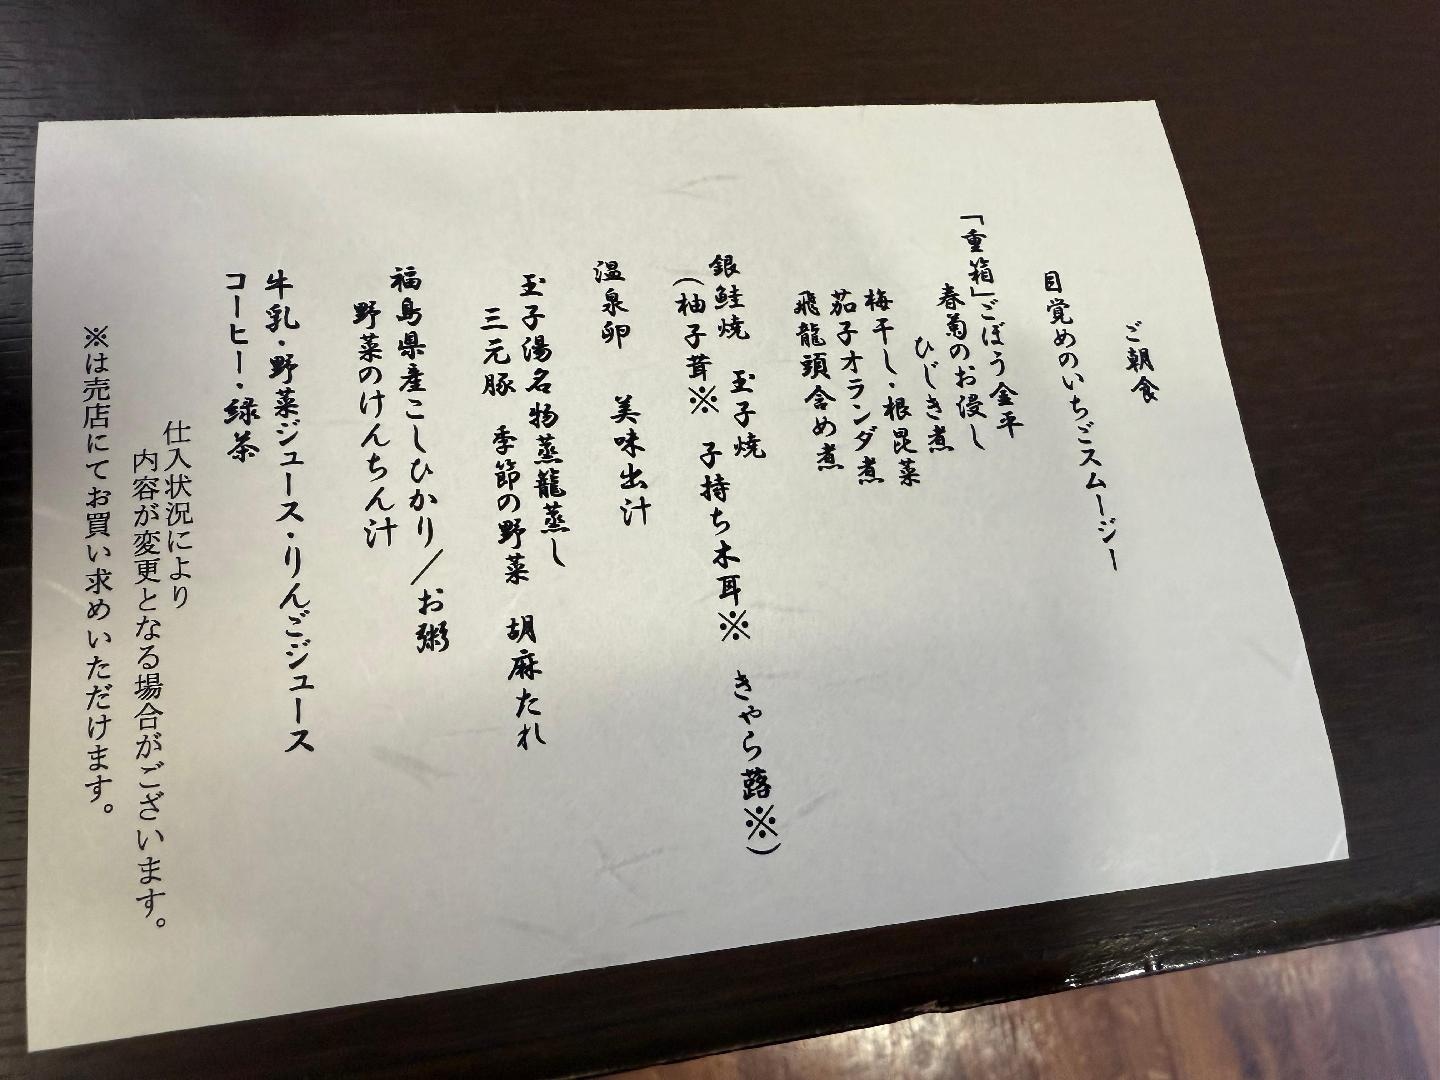 ご朝食
目覚めのいちごスムージー
「重箱」ごぼう金平
春菊のお浸し
ひじき煮
梅干し・根昆菜
茄子オランダ煮
飛龍頭含め煮
銀鮭焼　玉子焼
（柚子茸※　子持ち木耳※　きゃら蕗※）
温泉卵　美味出汁
玉子湯名物蒸籠蒸し
三元豚　季節の野菜　胡麻たれ
福島県産こしひかり／お粥
野菜のけんちん汁
牛乳・野菜ジュース・りんごジュース
コーヒー・緑茶
仕入状況により
内容が変更となる場合がございます。
※は売店にてお買い求めいただけます。